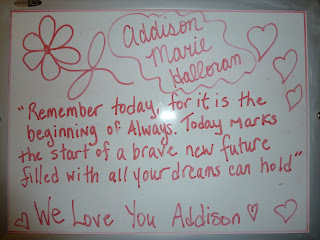 Addison
Marie
Halloran
"Remember today, for it is the
beginning of Always. Today Marks
the start of a brave new future
filled with all your dreams can hold"
We Love You Addison